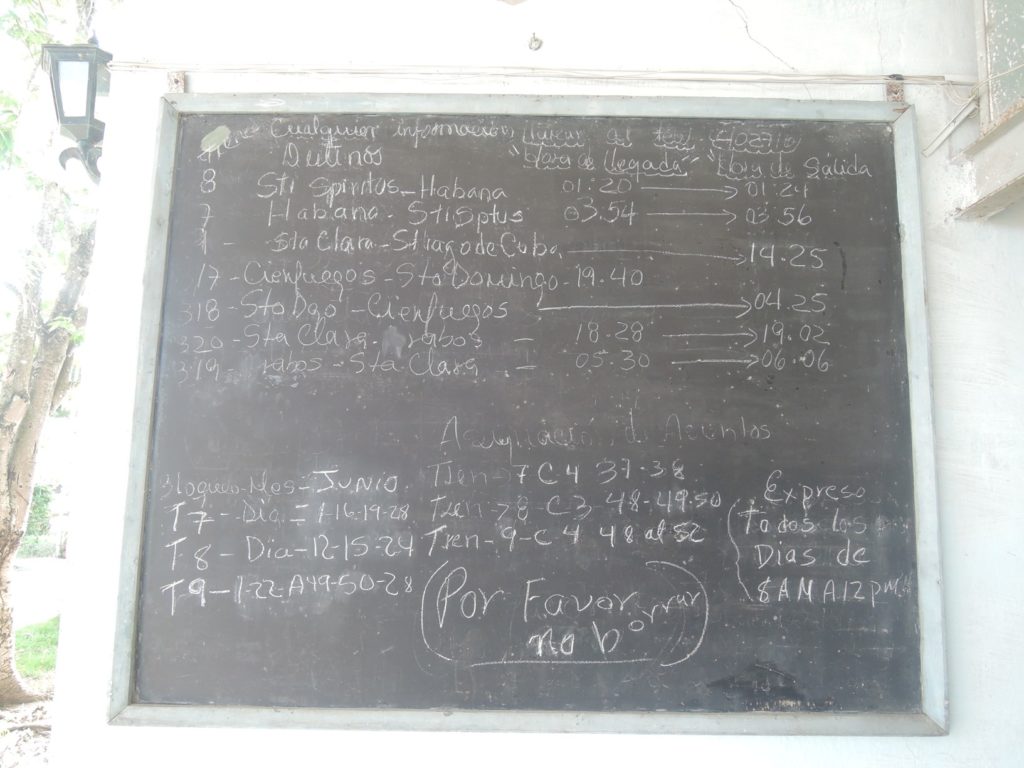 Cualquier información, llamar al tel,
Destinos "Hora de llegada" "Hora de Salida
8 Sti Spiritus-Habana 01:20 → 01:24
7 Habana-StiSptus 03.54 → 03 56
Sta Clara-Stiago de Cuba → 14.25
17-Cienfuegos-Sto Domingo-19.40
318-Sto Dgo-Cienfuegos → 04.25
320-Sta Clara- rabos - 18.28 → 19.02
319- rabos-Sta Clara - 05.30 → 06.06
Asignación de Asientos
Bloqueo-Mes-JUNIO. Tren-7 C4 37-38
T7-Dia= 1-16-19-28 Tren-8-C3-48-49-50
T8-Dia-12-15-24 Tren-9-C4 48 al 52
T9-1-22-A49-50-28
Expreso
Todos los
Dias de
8AM A12pm
(Por Favor
no borrar)